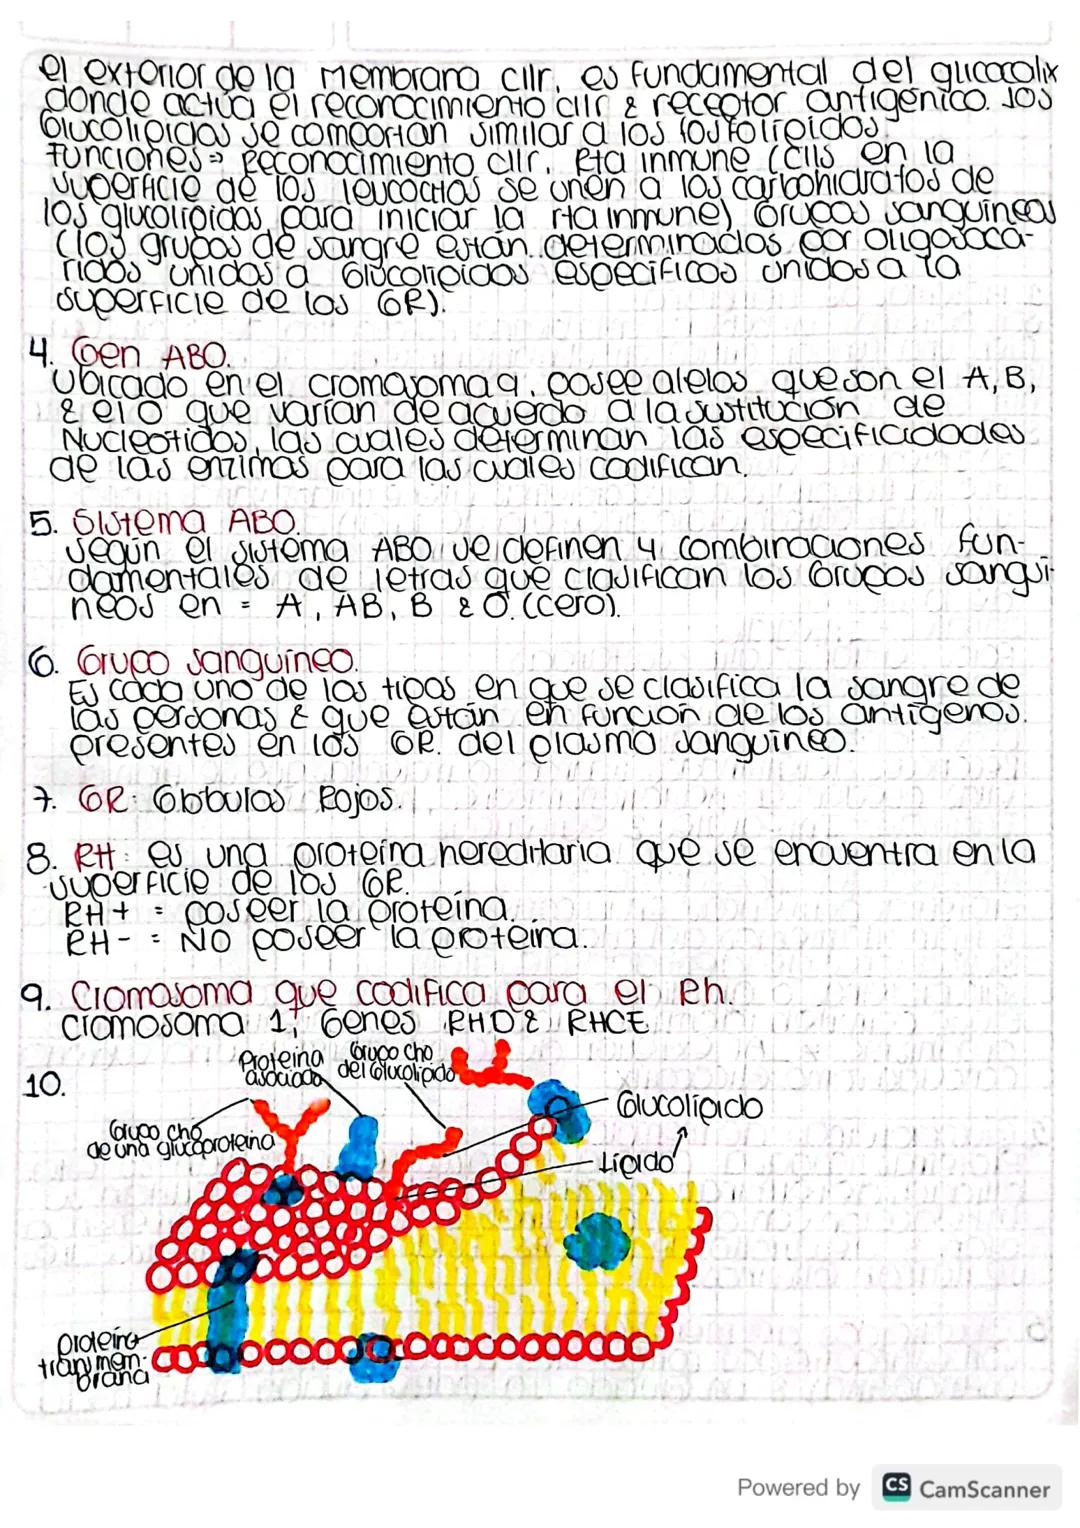 el exterior de la Membrana cllr. es fundamental del glucocalix
donde actúa el reconocimiento cllr & receptor antigénico. Los
Glucolípidos se comportan similar a los fosfolípidos.
Funciones => Reconocimiento cllr. Rta inmune (clls en la
superficie de los leucocitos se unen a los carbohidratos de
los glucolípidos para iniciar la rta inmune) Grupos sanguíneos
(los grupos de sangre están determinados por oligosaca-
ridos unidos a Glucolipidos específicos unidos a la
superficie de los GR).
4. Gen ABO.
Ubicado en el cromosoma 9. posee alelos que son el A, B,
& el O que varían de acuerdo a la sustitución de
Nucleotidos, las cuales determinan las especificidades
de las enzimas para las cuales codifican.
5. Sistema ABO.
según el sistema ABO se definen 4 combinaciones fun-
damentales de letras que clasifican los Grupos sanguí-
neos en = A, AB, B & O. (cero).
6. Grupo sanguíneo.
Es cada uno de los tipos en que se clasifica la sangre de
las personas & que están en función de los antígenos.
presentes en los GR. del plasma sanguíneo.
7. GR: Glóbulos Rojos.
8. RH: es una proteína hereditaria que se encuentra en la
superficie de los GR.
RH+ = poseer la proteína.
RH- = NO poseer la proteína.
9. Cromosoma que codifica para el Rh.
cromosoma 1, Genes RHD & RHCE
10.
Proteína asociada
Grupo cho del Glucolípido
Grupo cho de una glucoproteína
Glucolípido
Lípido
proteína transmem-
brana
Powered by CS CamScanner